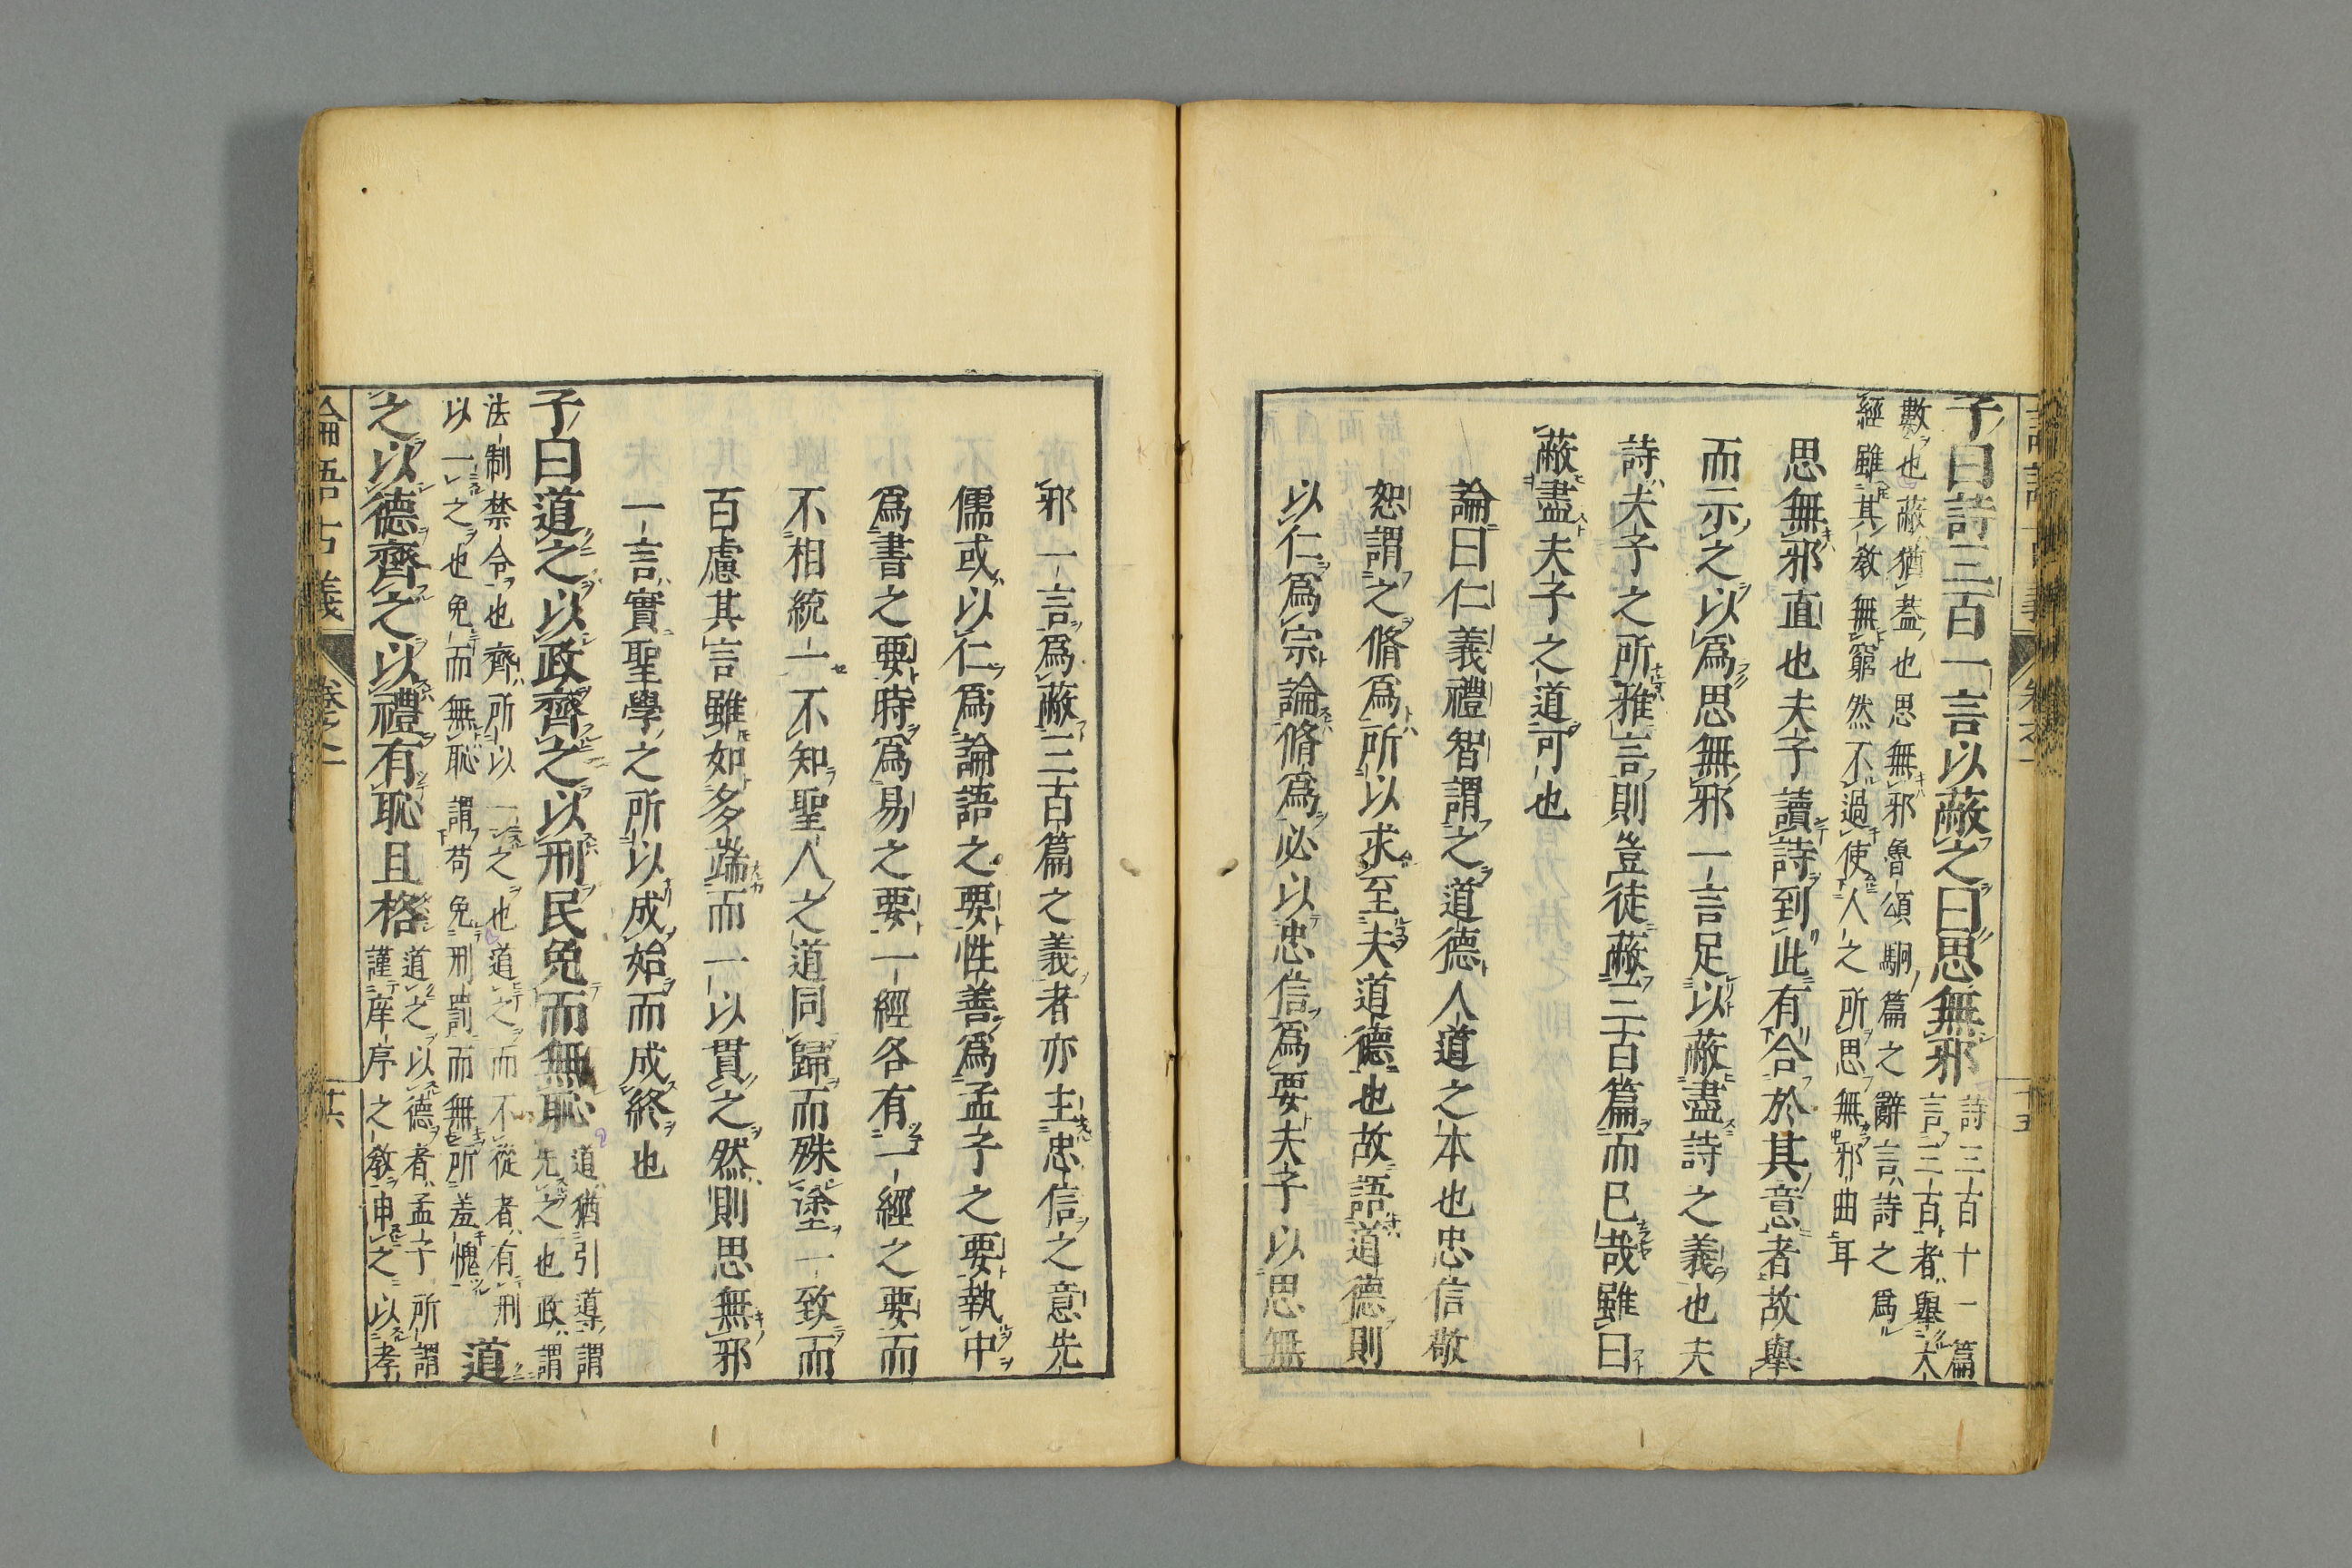 子曰詩三百一言以蔽之曰思無邪
詩三百十一篇
言三百者舉大
數也蔽猶蓋也思無邪魯頌駉篇之辭言詩之爲
經雖其教無窮然不過使人之所思無邪曲耳
思無邪直也夫子讀詩到此有合於其意者故舉
而示之以爲思無邪一言足以蔽盡詩之義也夫
詩夫子之所雅言則豈徒蔽三百篇而已哉雖曰
蔽盡夫子之道可也
論曰仁義禮智謂之道德人道之本也忠信敬
恕謂之脩爲所以求至夫道德也故語道德則
以仁爲宗論脩爲必以忠信爲要夫子以思無
邪一言爲蔽三百篇之義者亦主忠信之意先
儒或以仁爲論語之要性善爲孟子之要執中
爲書之要時爲易之要一經各有一經之要而
不相統一不知聖人之道同歸而殊塗一致而
百慮其言雖如多端而一以貫之然則思無邪
一言實聖學之所以成始而成終也
子曰道之以政齊之以刑民免而無恥
道猶引導謂
先之也政謂
法制禁令也齊所以一之也道之而不從者有刑
以一之也免而無恥謂苟免刑罰而無所羞愧
道
之以德齊之以禮有恥且格
道之以德者孟子所謂
謹庠序之教申之以孝
論語古義
卷之一
十六